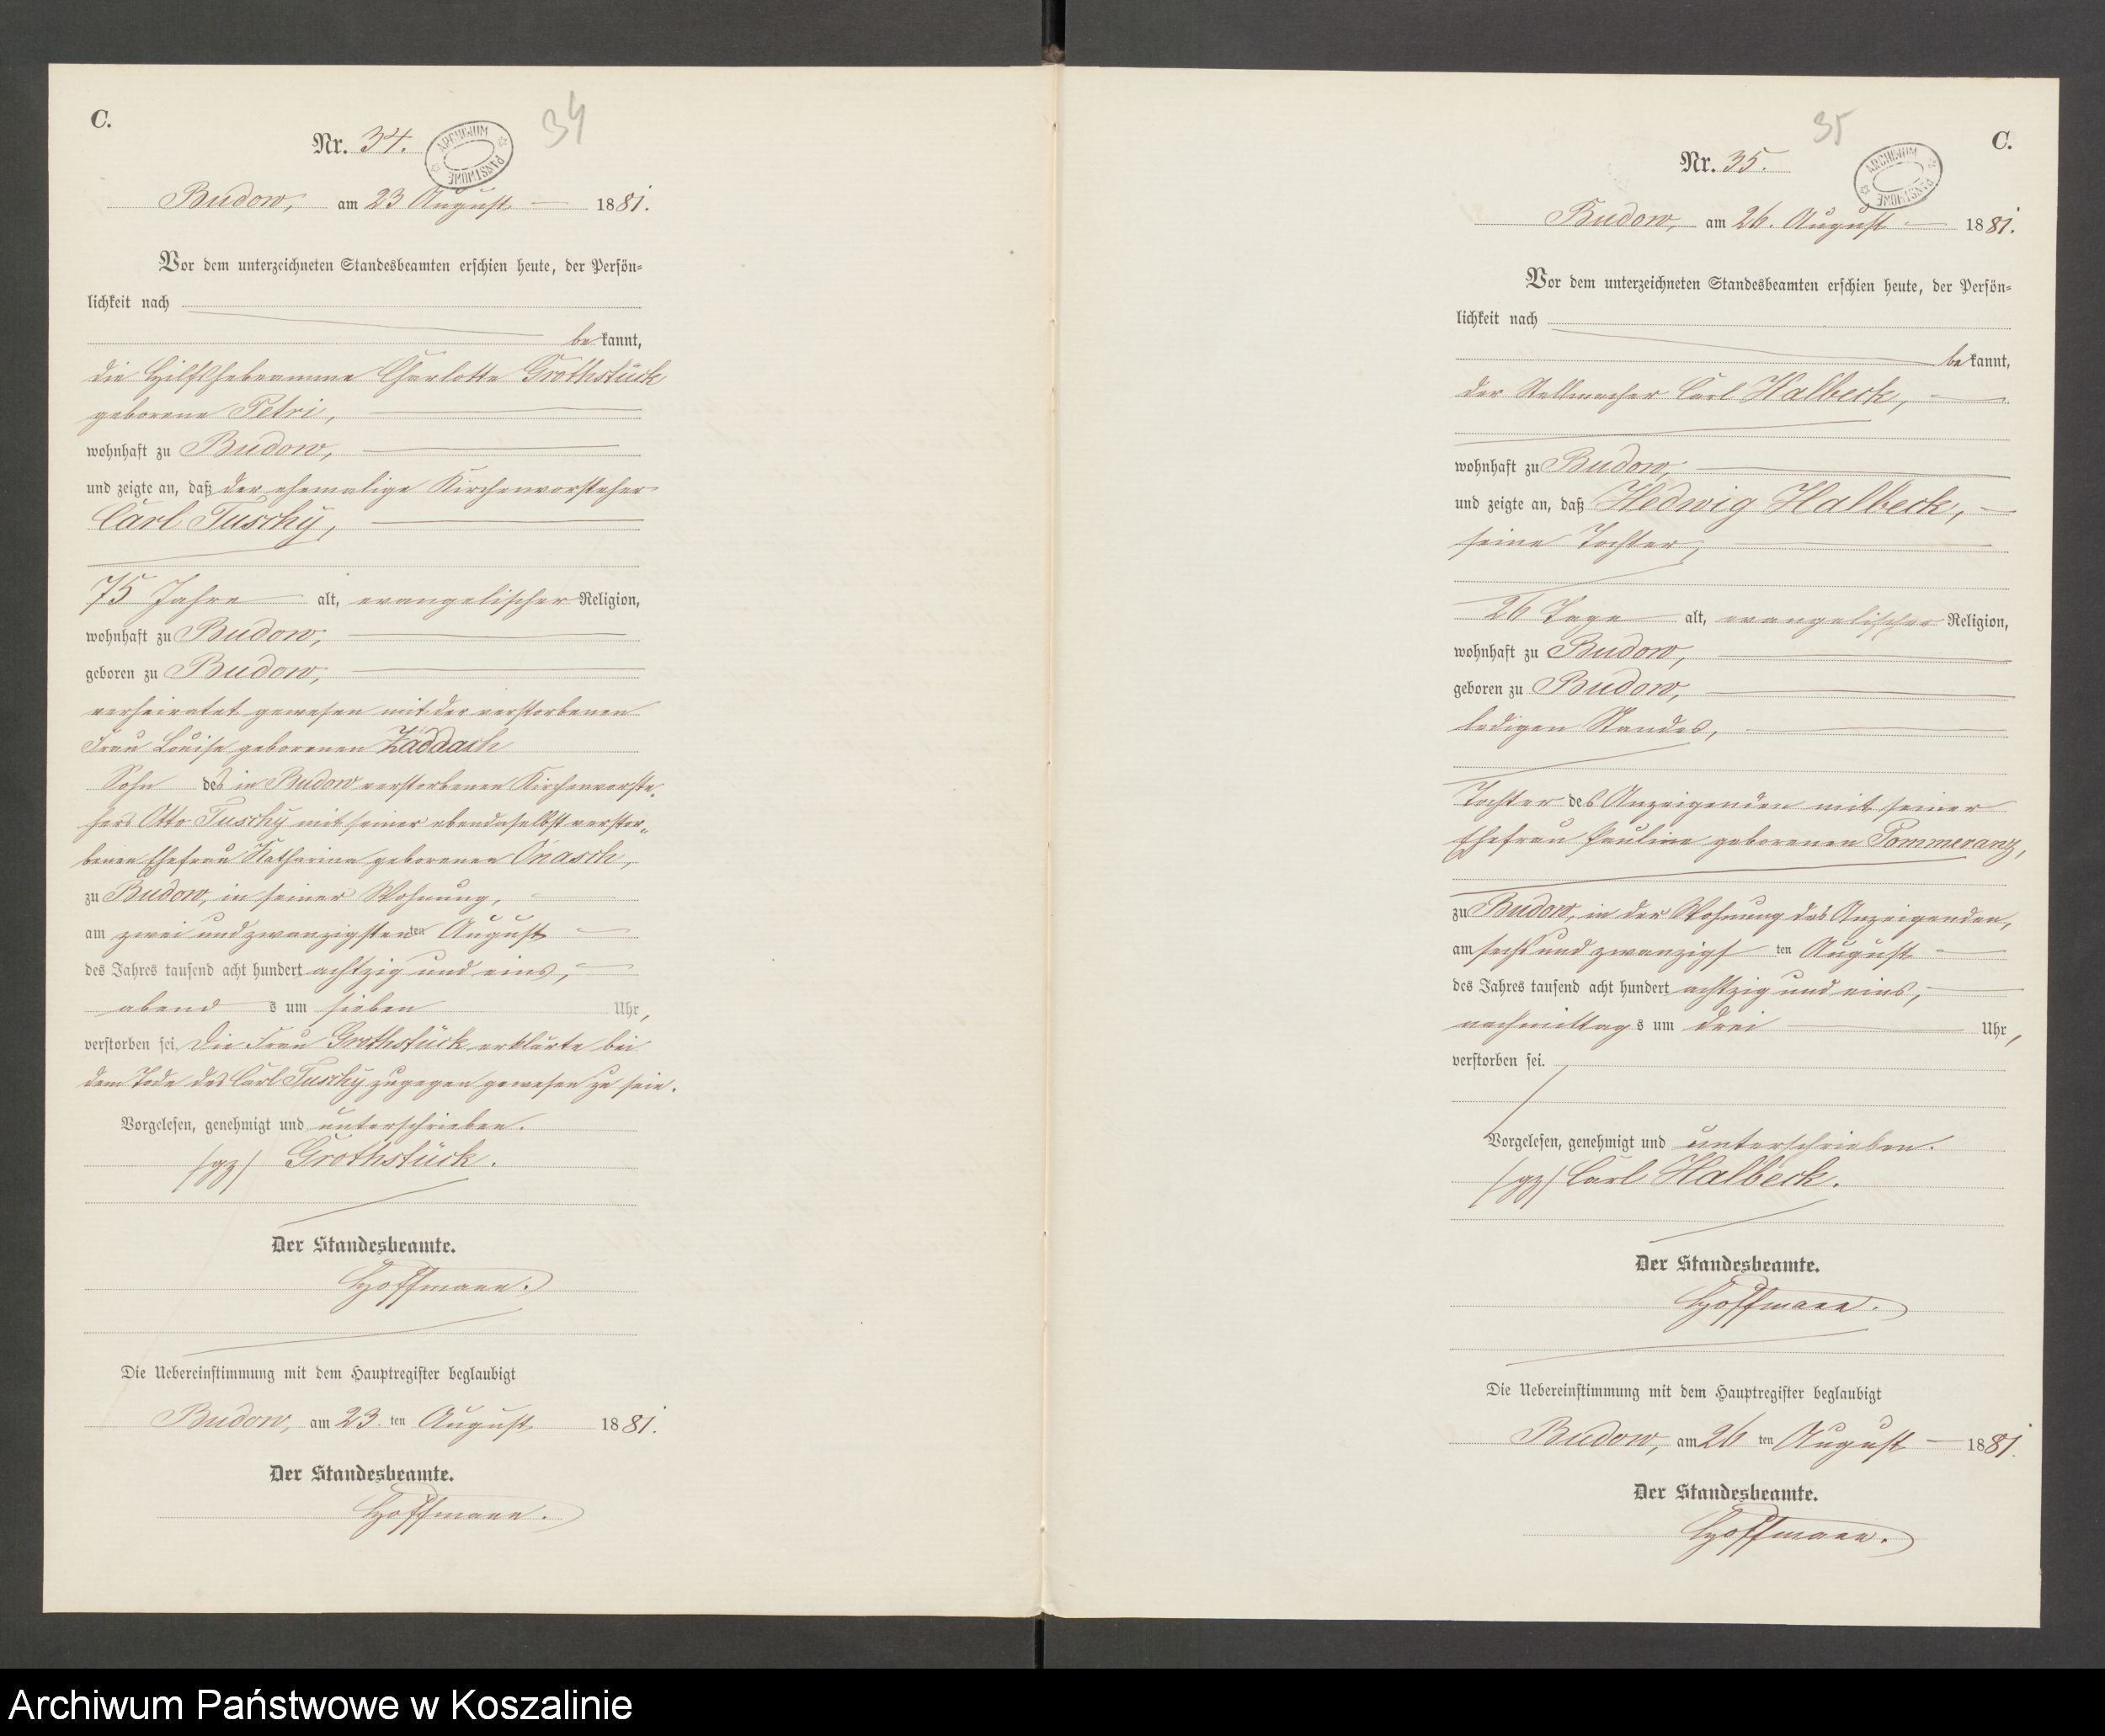 C.
34
Nr. 34.
ARCHIWUM PAŃSTWOWE
Budow, am 23 August 1881.
Vor dem unterzeichneten Standesbeamten erschien heute, der Persön-
lichkeit nach
bekannt,
die Hilfshebeamme Charlotte Grothstück
geborene Petri,
wohnhaft zu Budow,
und zeigte an, daß der ehemalige Kirchenvorsteher
Carl Tuschy,
75 Jahre alt, evangelischer Religion,
wohnhaft zu Budow,
geboren zu Budow,
verheiratet gewesen mit der verstorbenen
Frau Louise geborenen Zaddach
Sohn des in Budow verstorbenen Kirchenvorste-
hers Otto Tuschy mit seiner ebendaselbst verstor-
benen Ehefrau Katharina geborenen Onasch,
zu Budow, in seiner Wohnung,
am zwei und zwanzigsten ten August
des Jahres tausend acht hundert achtzig und eins,
abend s um sieben Uhr,
verstorben sei. Die Frau Grothstück erklärte bei
dem Tode des Carl Tuschy zugegen gewesen zu sein.
Vorgelesen, genehmigt und unterschrieben.
(gz) Grothstück.
Der Standesbeamte.
Hoffmann.
Die Uebereinstimmung mit dem Hauptregister beglaubigt
Budow, am 23. ten August 1881.
Der Standesbeamte.
Hoffmann.
35
C.
Nr. 35.
ARCHIWUM PAŃSTWOWE
Budow, am 26. August 1881.
Vor dem unterzeichneten Standesbeamten erschien heute, der Persön-
lichkeit nach
bekannt,
der Stellmacher Carl Halbeck,
wohnhaft zu Budow,
und zeigte an, daß Hedwig Halbeck,
seine Tochter,
26 Tage alt, evangelischer Religion,
wohnhaft zu Budow,
geboren zu Budow,
ledigen Standes,
Tochter des Anzeigenden mit seiner
Ehefrau Pauline geborenen Pommeranz,
zu Budow, in der Wohnung des Anzeigenden,
am sechs und zwanzigs ten August
des Jahres tausend acht hundert achtzig und eins,
nachmittag s um drei Uhr,
verstorben sei.
Vorgelesen, genehmigt und unterschrieben.
(gz) Carl Halbeck.
Der Standesbeamte.
Hoffmann.
Die Uebereinstimmung mit dem Hauptregister beglaubigt
Budow, am 26 ten August 1881.
Der Standesbeamte.
Hoffmann.
Archiwum Państwowe w Koszalinie